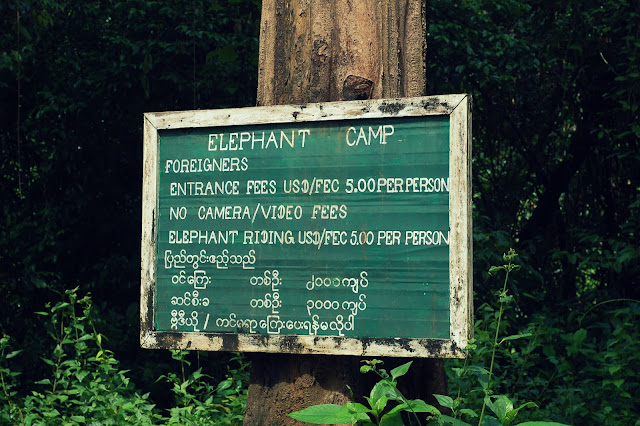 ELEPHANT CAMP
FOREIGNERS
ENTRANCE FEES USD/FEC 5.00 PER PERSON
NO CAMERA/VIDEO FEES
ELEPHANT RIDING USD/FEC 5.00 PER PERSON
ပြည်တွင်းဧည့်သည်
ဝင်ကြေး တစ်ဦး ၂၀၀၀ကျပ်
ဆင်စီးခ တစ်ဦး ၃၀၀၀ကျပ်
ဗွီဒီယို / ကင်မရာကြေးပေးရန်မလိုပါ